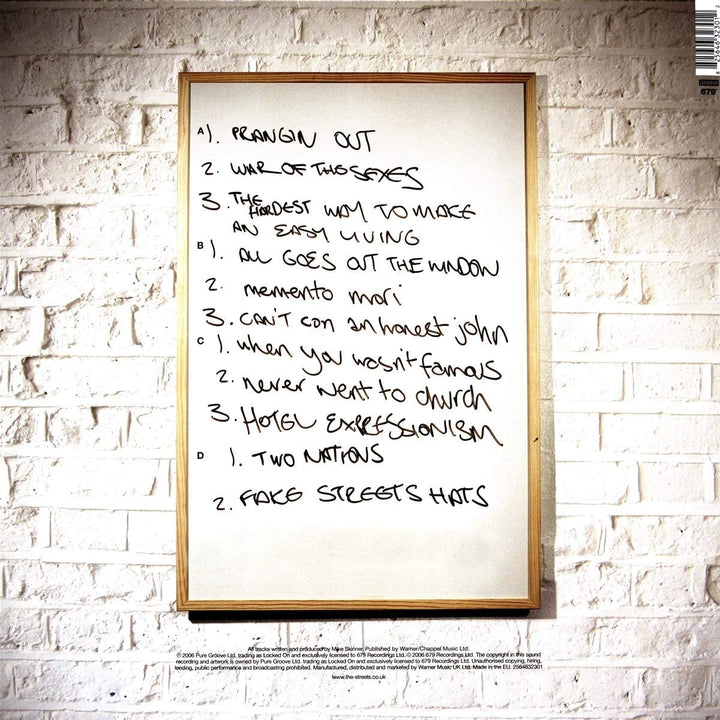 A 1. PRANGIN OUT
2. WAR OF THE SEXES
3. THE HARDEST WAY TO MAKE
AN EASY LIVING
B 1. ALL GOES OUT THE WINDOW
2. memento mori
3. CAN'T con an honest john
C 1. when you wasn't famous
2. never went to church
3. HOTEL EXPRESSIONISM
D 1. TWO NATIONS
2. FAKE STREETS HATS
All tracks written and produced by Mike Skinner. Published by Warner/Chappel Music Ltd.
℗ 2006 Pure Groove Ltd. trading as Locked On and exclusively licensed to 679 Recordings Ltd. © 2006 679 Recordings Ltd. The copyright in this sound
recording and artwork is owned by Pure Groove Ltd. trading as Locked On and exclusively licensed to 679 Recordings Ltd. Unauthorised copying, hiring,
lending, public performance and broadcasting prohibited. Manufactured, distributed and marketed by Warner Music UK Ltd. Made in the EU. 2564632301
www.the-streets.co.uk
679